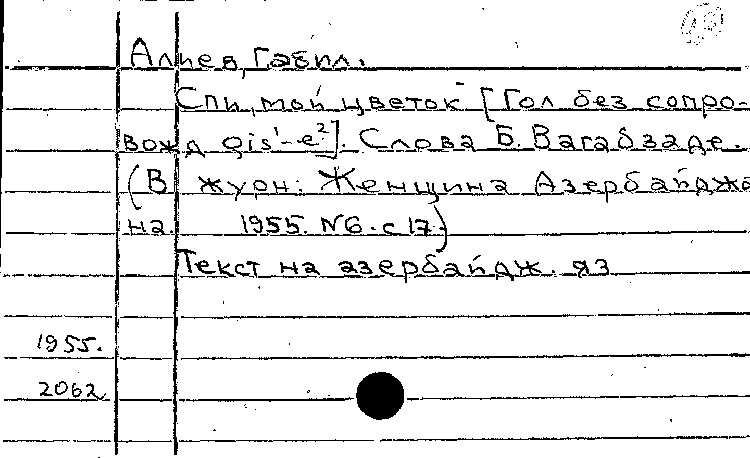 Алиев, Габил.
Спи, мой цветок [Гол без сопро-
вожд gis¹-e²]. Слова Б. Вагабзаде.
(В журн: Женщина Азербайджа
на. 1955. №6. с 17.)
Текст на азербайдж. яз
1955.
2062